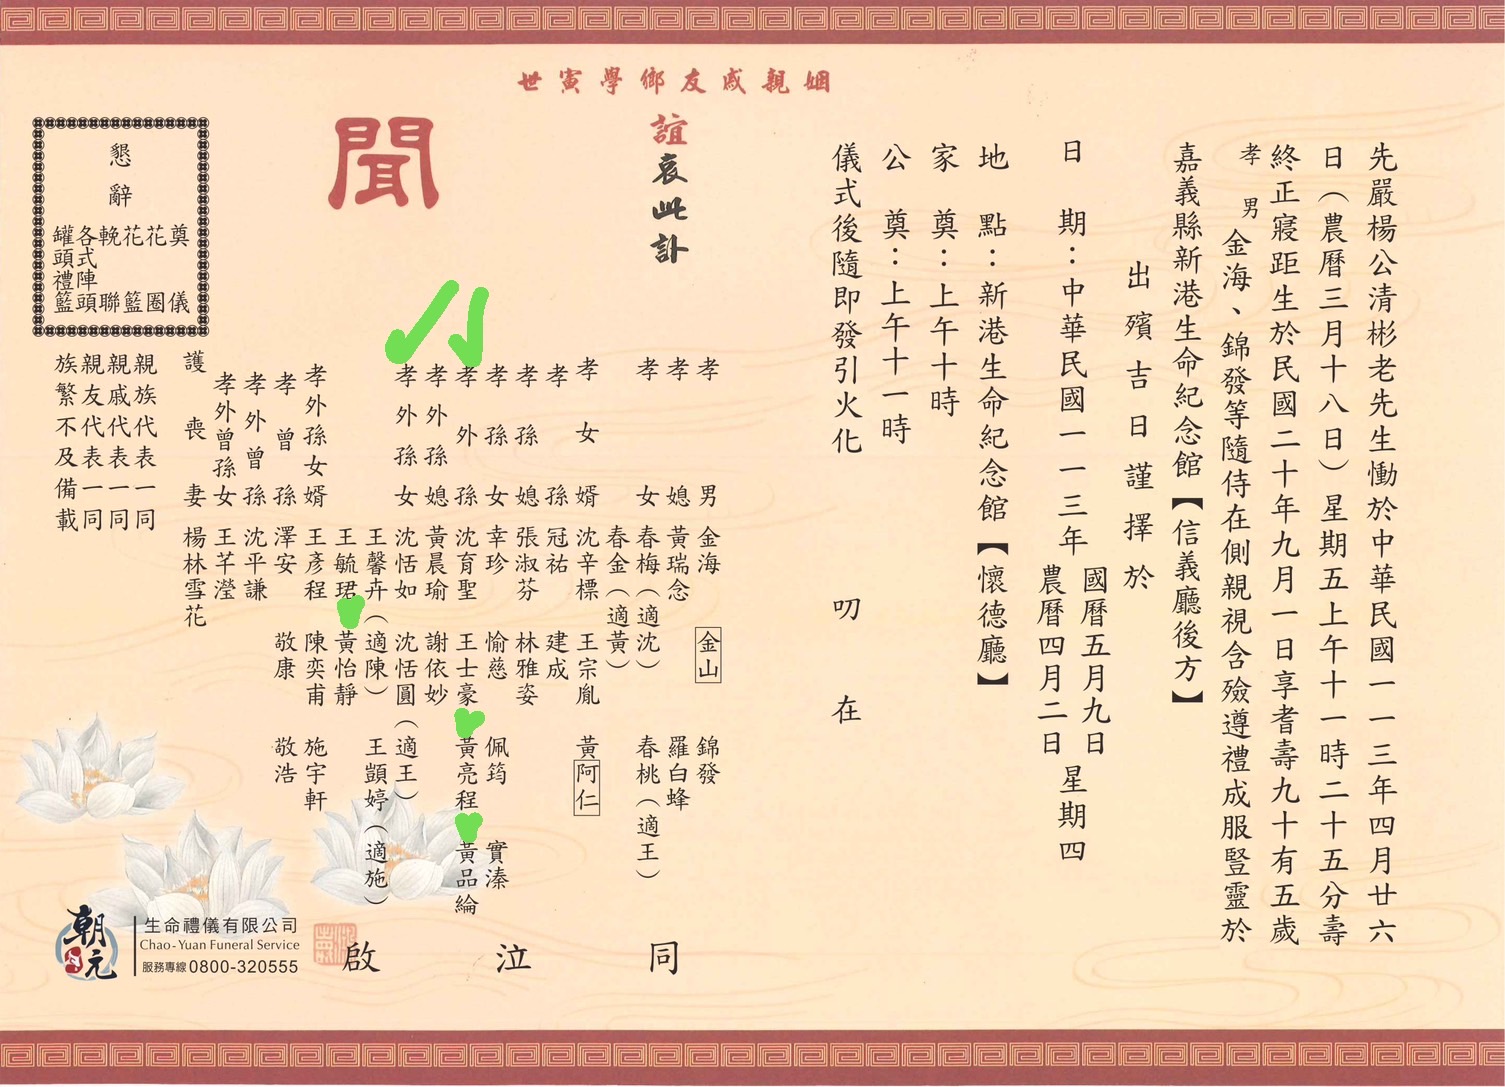 姻親戚友鄉學寅世
誼哀此訃
聞
先嚴楊公清彬老先生慟於中華民國一一三年四月廿六
日（農曆三月十八日）星期五上午十一時二十五分壽
終正寢距生於民國二十年九月一日享耆壽九十有五歲
孝男金海、錦發等隨侍在側親視含殮遵禮成服豎靈於
嘉義縣新港生命紀念館【信義廳後方】
出殯吉日謹擇於
日期：中華民國一一三年 國曆五月九日 農曆四月二日 星期四
地點：新港生命紀念館【懷德廳】
家奠：上午十時
公奠：上午十一時
儀式後隨即發引火化
叨在
孝男 金海 金山 錦發
孝媳 黃瑞念 羅白蜂
孝女 春梅（適沈） 春桃（適王）
春金（適黃）
孝女婿 沈辛標 王宗胤 黃阿仁
孝孫 冠祐 建成
孝孫媳 張淑芬 林雅姿
孝孫女 幸珍 愉慈 佩筠 實溱
孝外孫 沈育聖 王士豪 黃亮程 黃品綸
孝外孫媳 黃晨瑜 謝依妙
孝外孫女 沈恬如 沈恬圓（適王）
王馨卉（適陳） 王顗婷（適施）
王毓珺 黃怡靜
孝外孫女婿 王彥程 陳奕甫 施宇軒
孝曾孫 澤安 敬康 敬浩
孝外曾孫 沈平謙
孝外曾孫女 王芊瀅
護喪妻 楊林雪花
親族代表一同
親戚代表一同
親友代表一同
族繁不及備載
同泣啟
懇辭
奠儀
花圈
花籃
輓聯
各式陣頭
罐頭禮籃
朝元
生命禮儀有限公司
Chao-Yuan Funeral Service
服務專線 0800-320555